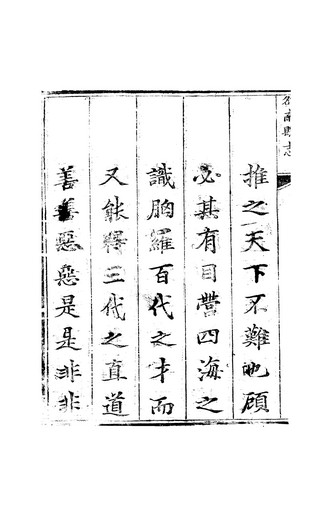 南縣志
推之天下不難也顧
必其有目營四海之
識胸羅百代之才而
又能釋三代之直道
善善惡惡是是非非